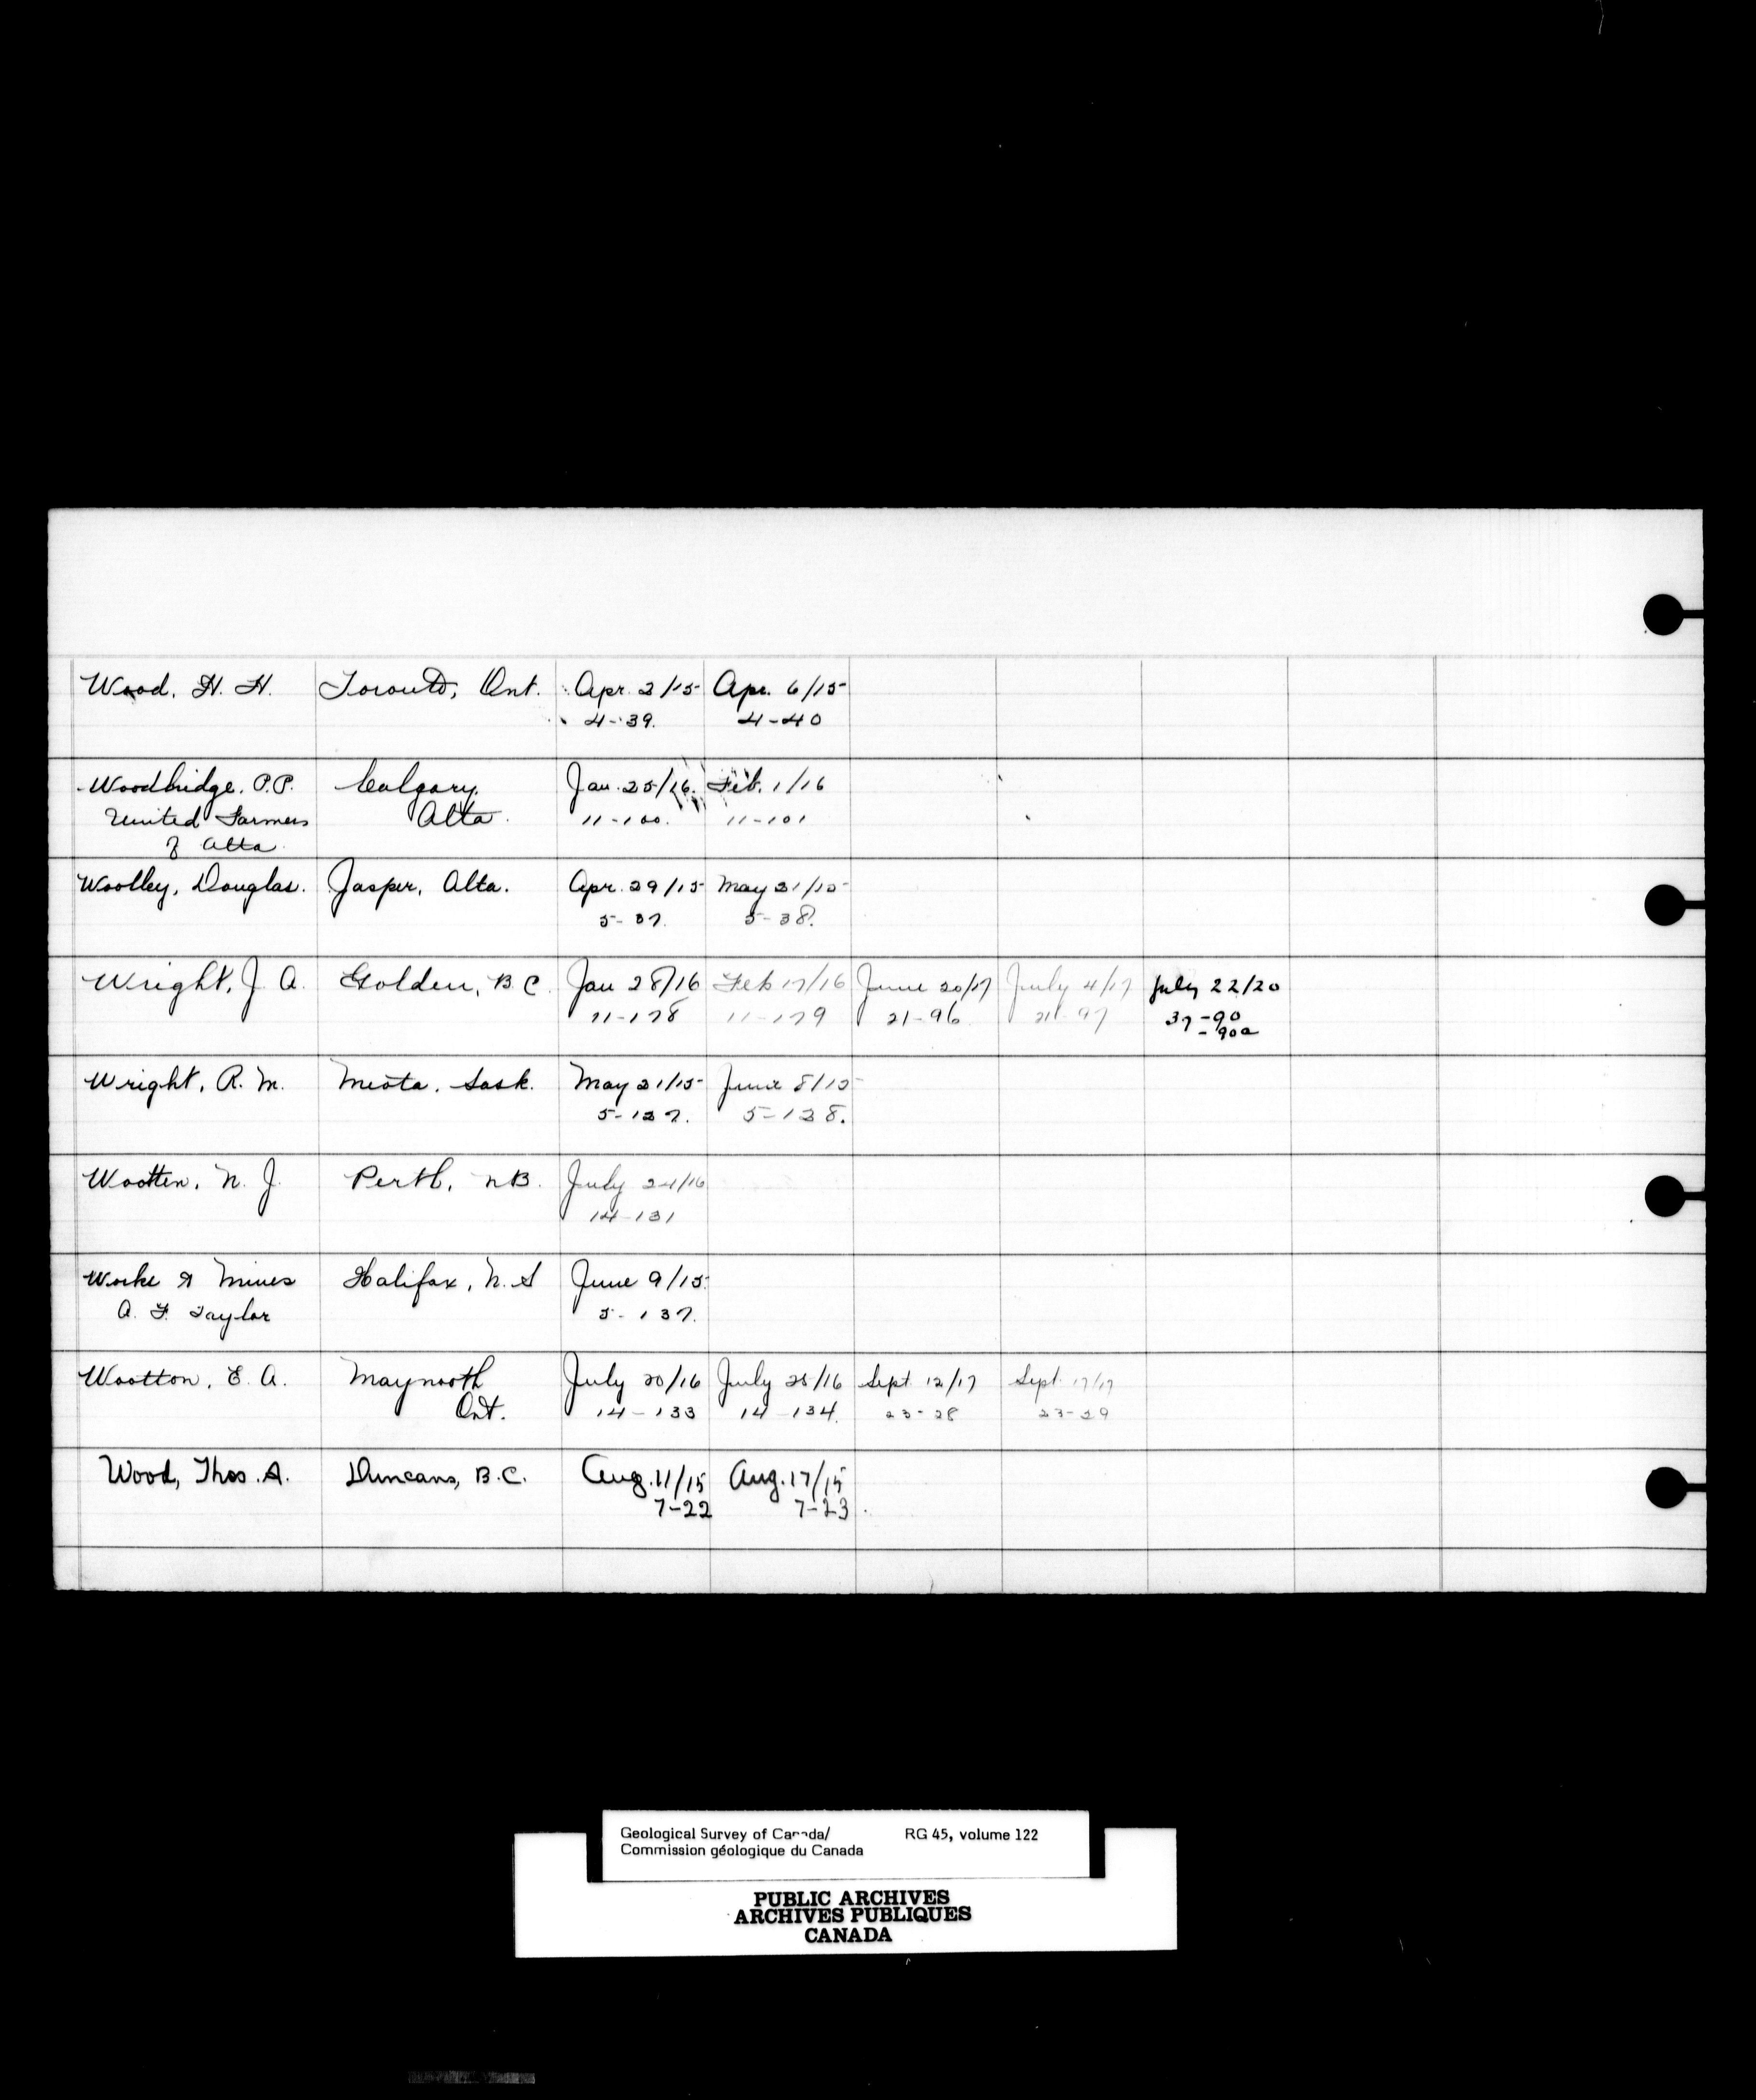 Wood, H. H. Toronto, Ont. Apr. 2/15 Apr. 6/15
4-39. 4-40
Woodbridge, P.P. Calgary, Jan. 25/16. Feb. 1/16
United Farmers Alta. 11-100. 11-101
of Alta.
Woolley, Douglas. Jasper, Alta. Apr. 29/15 May 21/15
5-37. 5-38.
Wright, J. A. Golden, B.C. Jan 28/16 Feb 17/16 June 20/17 July 4/17 July 22/20
11-178 11-179 21-96 21-97 37-90
-90a
Wright, R. M. Meota, Sask. May 21/15 June 8/15
5-127. 5-128.
Wootten, N. J. Perth, N.B. July 24/16
14-131
Works & Mines Halifax, N.S June 9/15
A. F. Taylor 5-137.
Wootton, E. A. Maynooth July 20/16 July 25/16 Sept 12/17 Sept. 17/17
Ont. 14-133 14-134. 23-28 23-29
Wood, Thos. A. Duncans, B.C. Aug. 11/15 Aug. 17/15
7-22 7-23
Geological Survey of Canada/ RG 45, volume 122
Commission géologique du Canada
PUBLIC ARCHIVES
ARCHIVES PUBLIQUES
CANADA